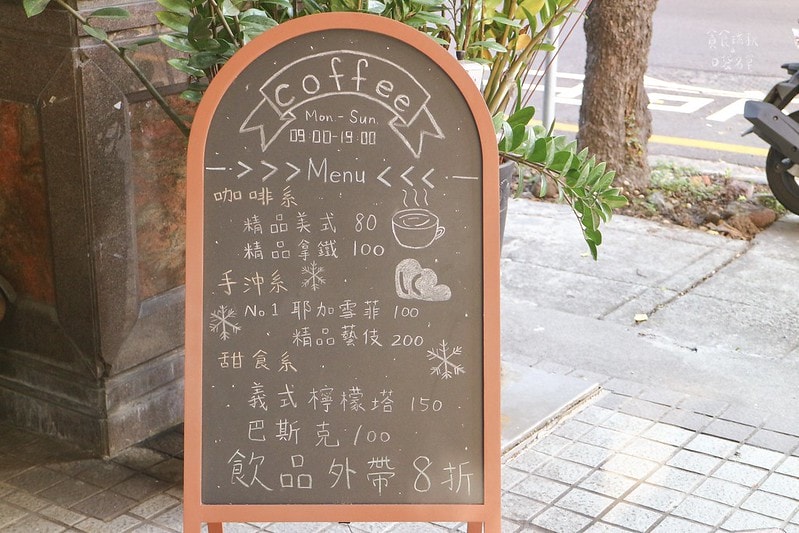 coffee
Mon.-Sun.
09:00-19:00
>>> Menu <<<
咖啡系
精品美式 80
精品拿鐵 100
手沖系
No1 耶加雪菲 100
精品藝伎 200
甜食系
義式檸檬塔 150
巴斯克 100
飲品外帶8折